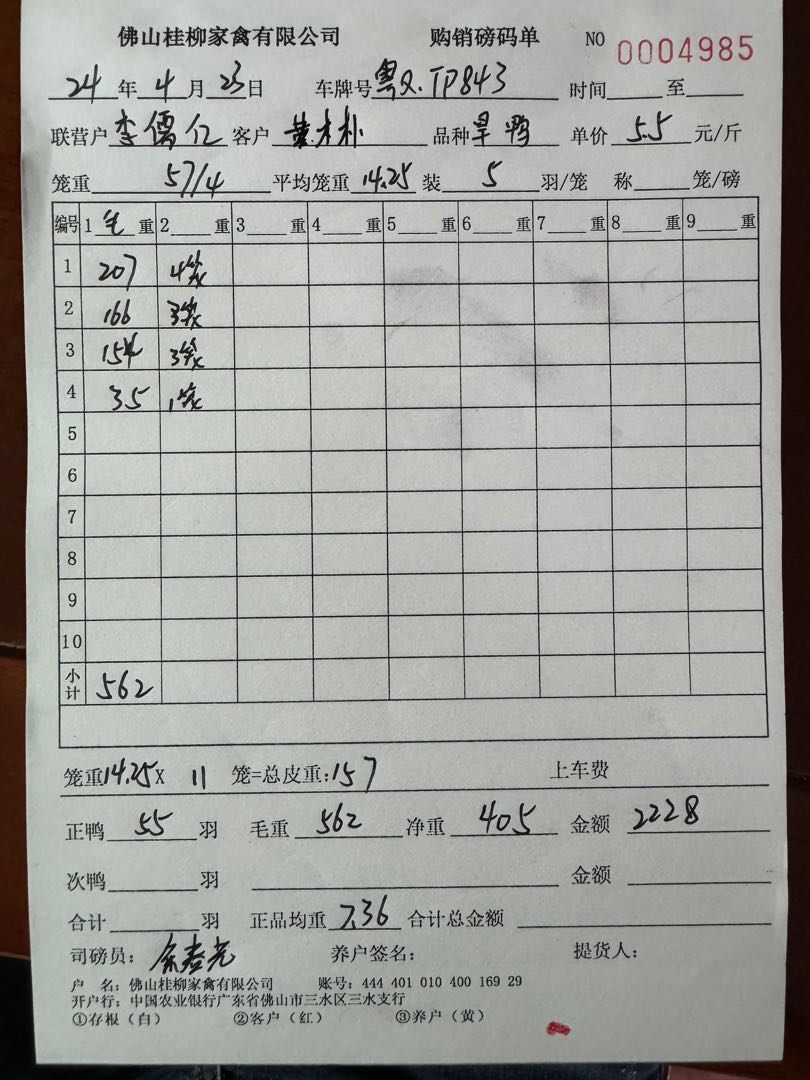 佛山桂柳家禽有限公司 购销磅码单 NO 0004985
24年4月23日 车牌号 粤Q.TP843 时间 至
联营户 李儒仁 客户 黄木朴 品种 旱鸭 单价 5.5 元/斤
笼重 57/4 平均笼重 14.25 装 5 羽/笼 称 笼/磅
编号 1 毛 重 2 重 3 重 4 重 5 重 6 重 7 重 8 重 9 重
1 207 4笼
2 166 3笼
3 154 3笼
4 35 1笼
5
6
7
8
9
10
小计 562
笼重14.25X 11 笼=总皮重:157 上车费
正鸭 55 羽 毛重 562 净重 405 金额 2228
次鸭 羽 金额
合计 羽 正品均重 7.36 合计总金额
司磅员: 养户签名: 提货人:
户 名: 佛山桂柳家禽有限公司 账号: 444 401 010 400 169 29
开户行: 中国农业银行广东省佛山市三水区三水支行
①存根（白） ②客户（红） ③养户（黄）